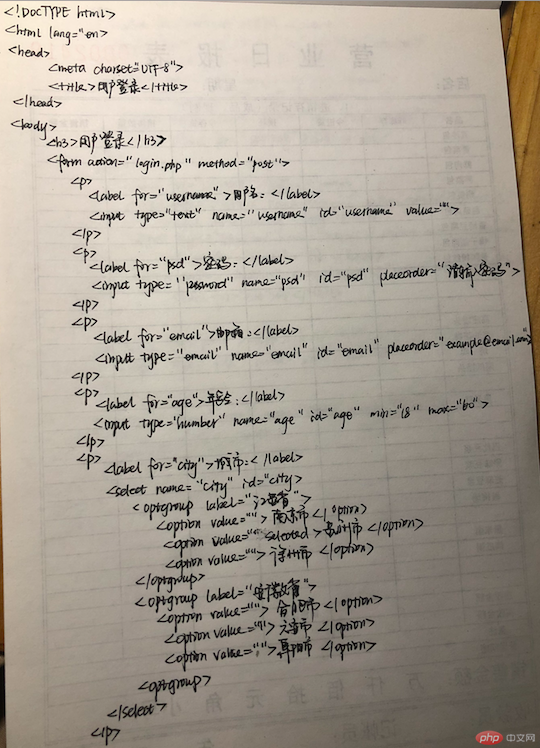 <!DOCTYPE html>
<html lang="en>
<head>
<meta charset="UTF-8">
<title>用户登录</title>
</head>
<body>
<h3>用户登录</h3>
<form action="login.php" method="post">
<p>
<label for="username">用户名:</label>
<input type="text" name="username" id="username" value="">
</p>
<p>
<label for="psd">密码:</label>
<input type="password" name="psd" id="psd" placeorder="请输入密码">
</p>
<p>
<label for="email">邮箱:</label>
<input type="email" name="email" id="email" placeorder="example@email.com>
</p>
<p>
<label for="age">年龄:</label>
<input type="number" name="age" id="age" min="18" max="60">
</p>
<p>
<label for="city">城市:</label>
<select name="city" id="city>
<optgroup label="江苏省">
<option value="">南京市</option>
<option value="" selected>苏州市</option>
<option value="">徐州市</option>
</optgroup>
<optgroup label="安徽省">
<option value="">合肥市</option>
<option value="">六安市</option>
<option value="">阜阳市</option>
<optgroup>
</select>
</p>
营业日报表
万仟佰拾元角
php 中文网